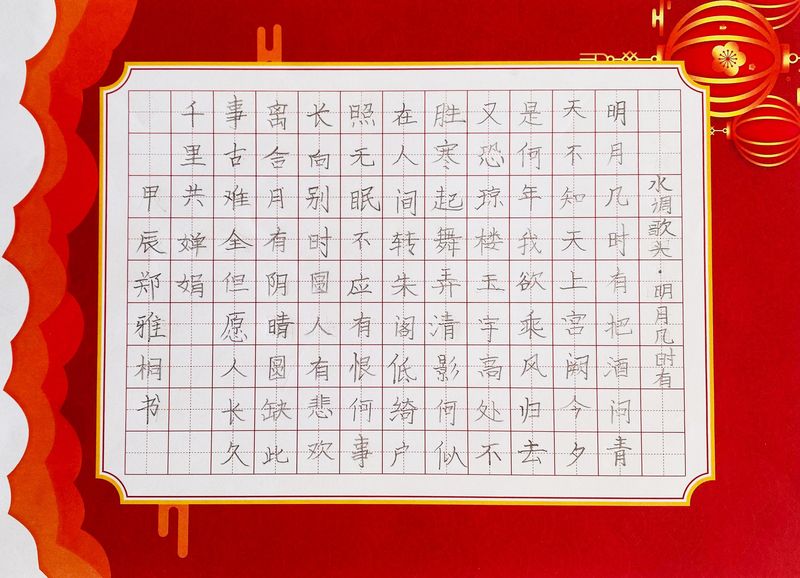 水调歌头·明月几时有
明月几时有把酒问青
天不知天上宫阙今夕
是何年我欲乘风归去
又恐琼楼玉宇高处不
胜寒起舞弄清影何似
在人间转朱阁低绮户
照无眠不应有恨何事
长向别时圆人有悲欢
离合月有阴晴圆缺此
事古难全但愿人长久
千里共婵娟
甲辰郑雅桐书